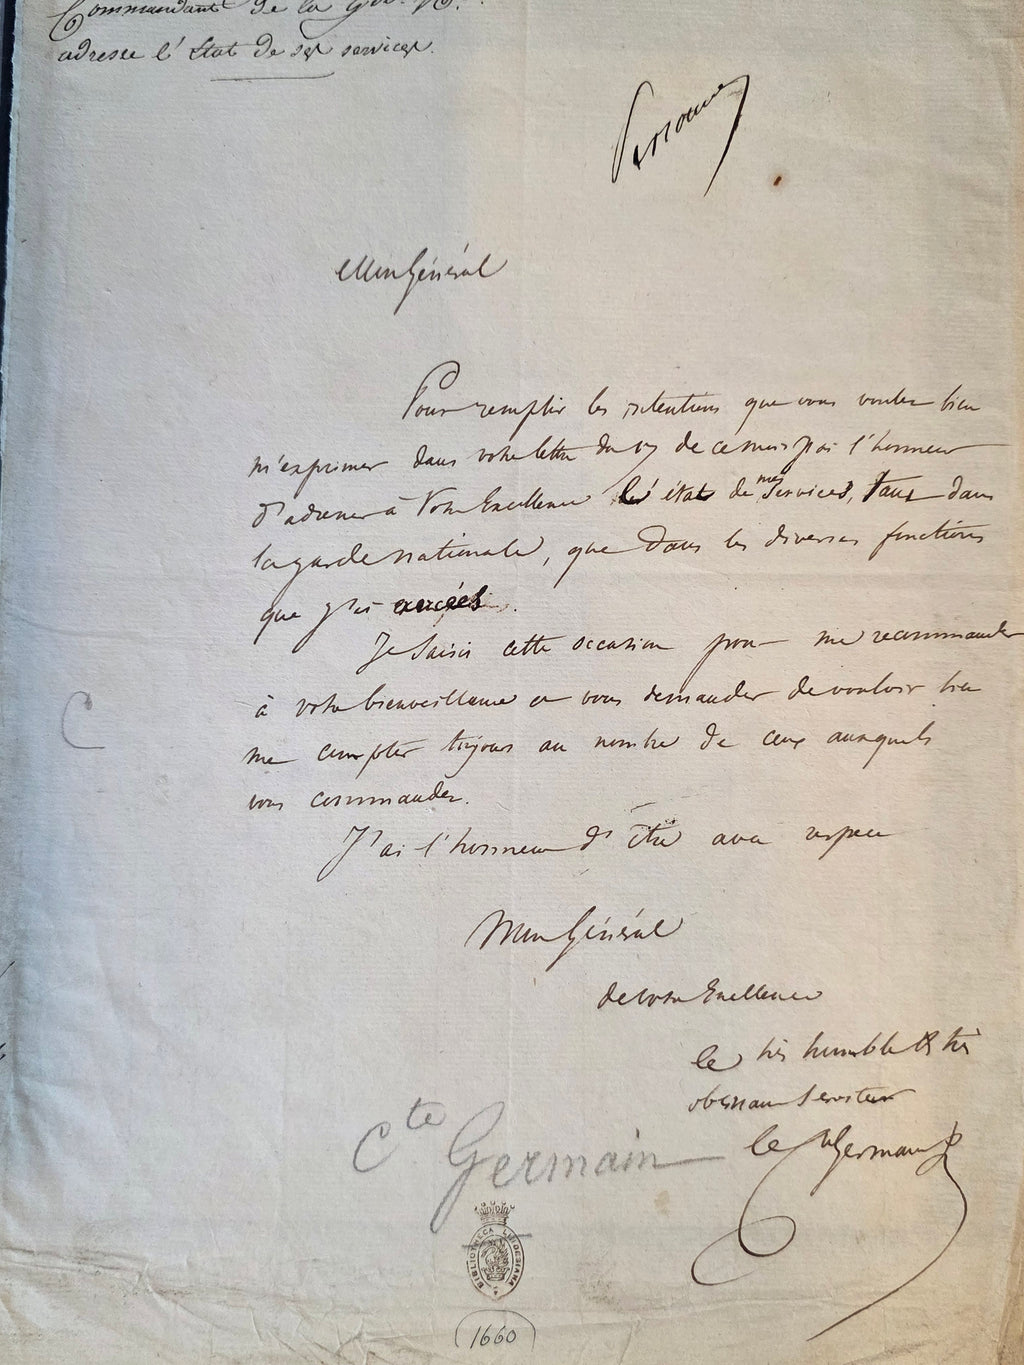 Commandant de la Gde. N.
adresse l'État de ses services.
Personnel
Mon Général
Pour remplir les intentions que vous voulez bien
m'exprimer dans votre lettre du 17 de ce mois j'ai l'honneur
d'adresser à Votre Excellence l'état de mes Services, tant dans
la garde nationale, que dans les diverses fonctions
que j'ai exercées.
Je saisis cette occasion pour me recommander
à votre bienveillance et vous demander de vouloir bien
me compter toujours au nombre de ceux auxquels
vous commandez.
J'ai l'honneur d'être avec respect
Mon Général
de votre Excellence
le très humble & très
obéissant Serviteur
le Germain
Cte Germain
BIBLIOTHECA LINDESIANA
1660